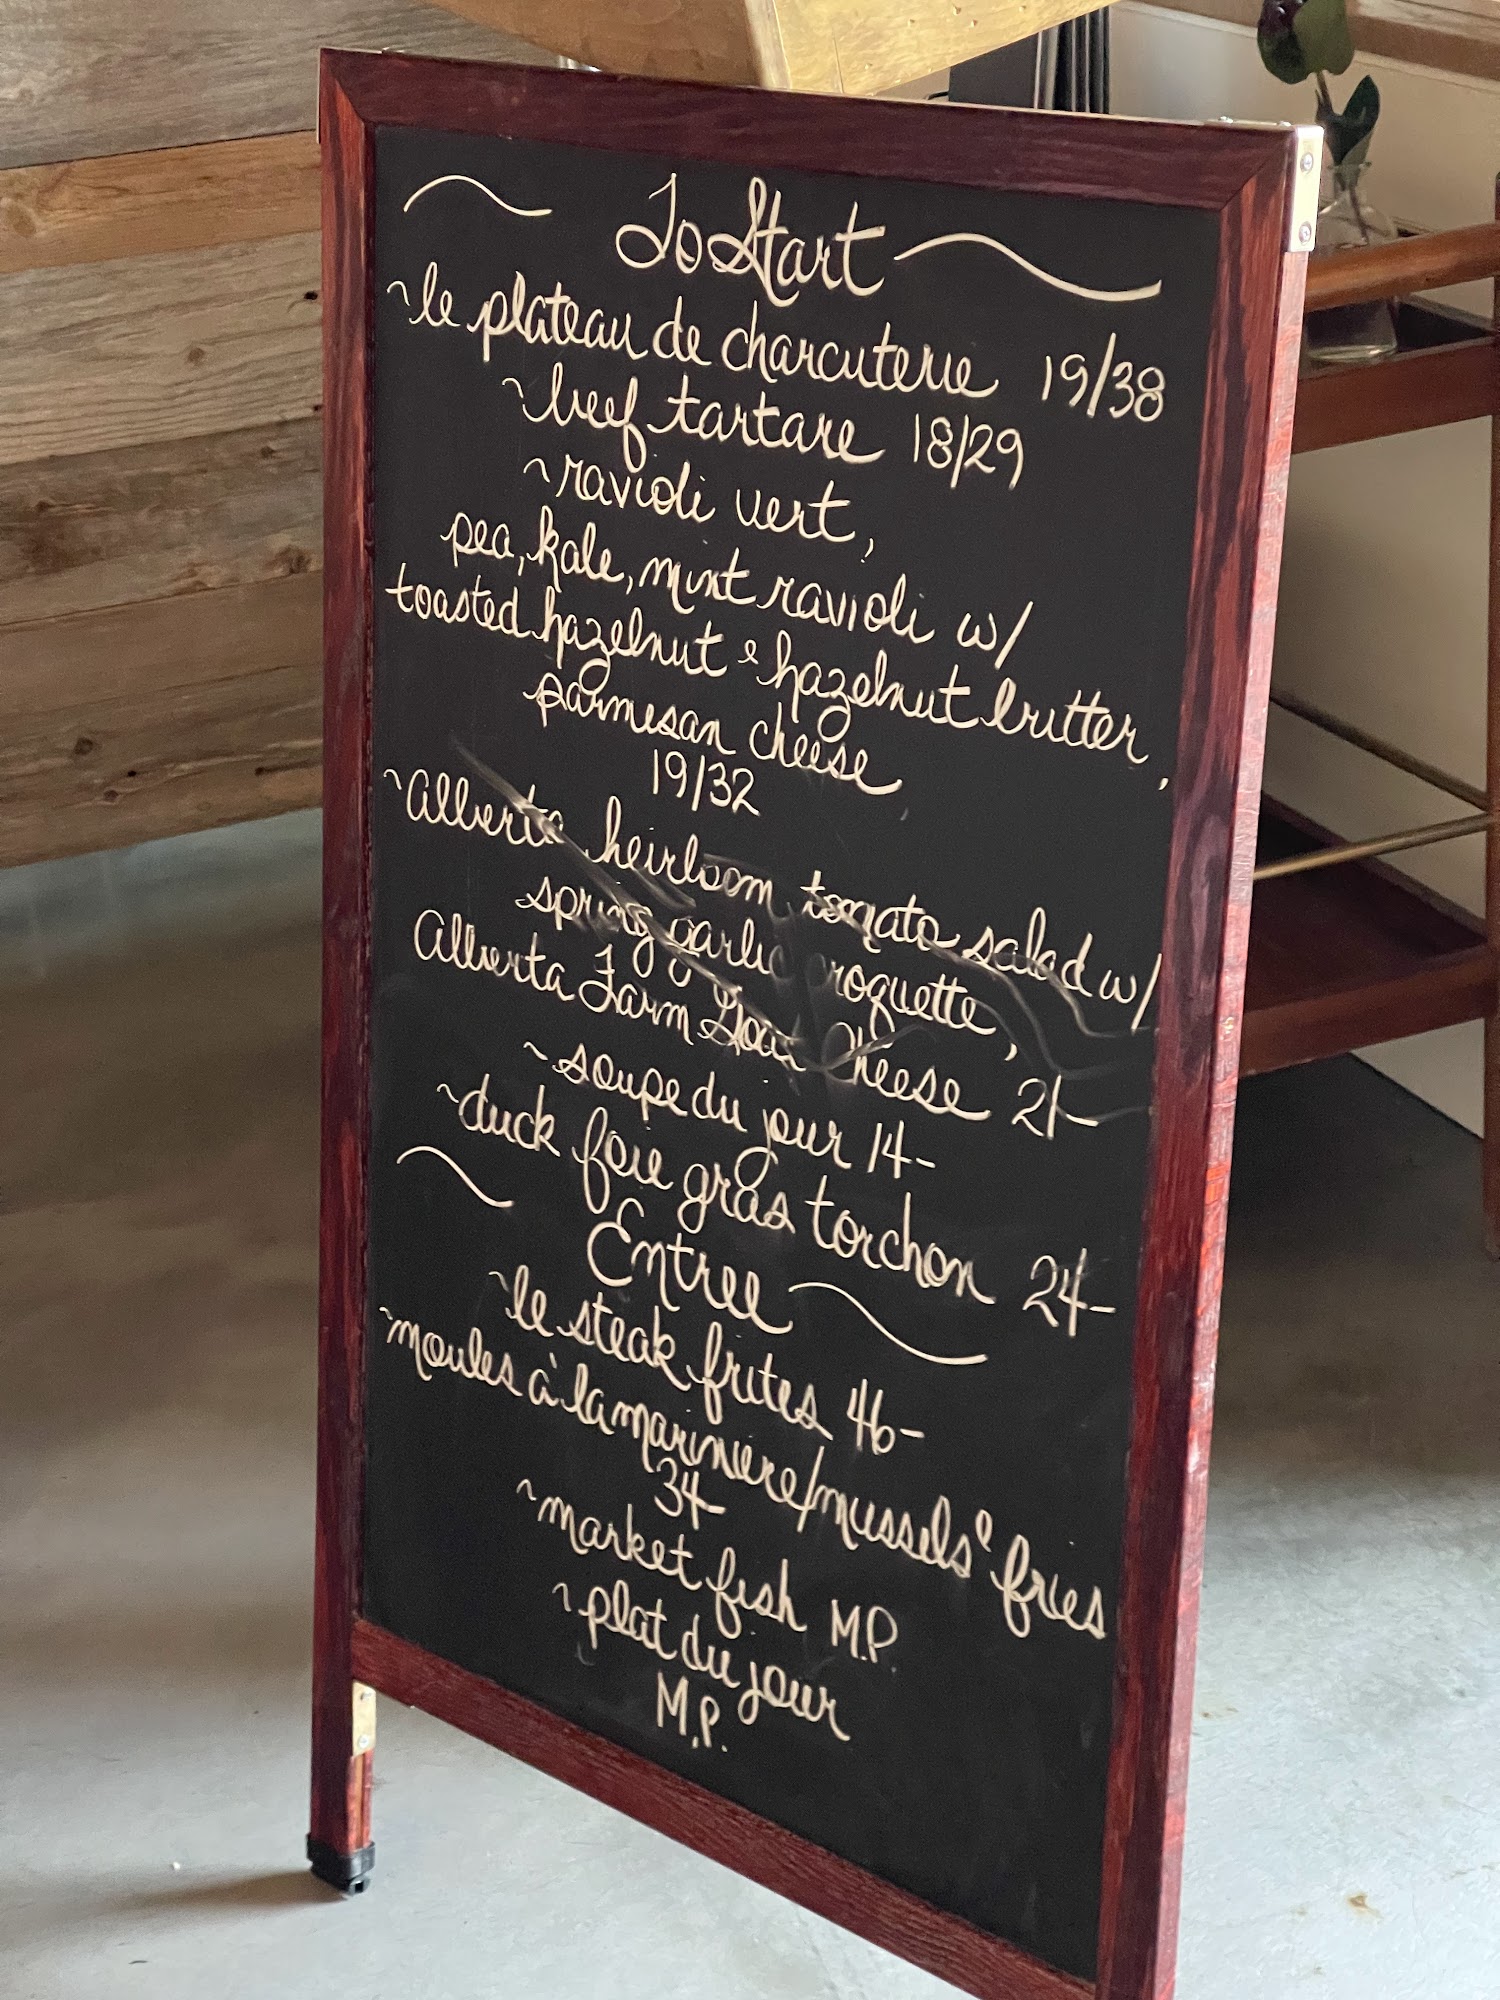 To Start
~le plateau de charcuterie 19/38
~beef tartare 18/29
~ravioli vert,
pea, kale, mint ravioli w/
toasted hazelnut & hazelnut butter,
parmesan cheese,
19/32
~Alberta heirloom tomato salad w/
spring garlic roquette,
Alberta Farm Goat Cheese 21-
~soupe du jour 14-
~duck foie gras torchon 24-
Entree
~le steak frites 46-
~moules à la mariniere/mussels & fries
34-
~market fish M.P.
~plat du jour
M.P.